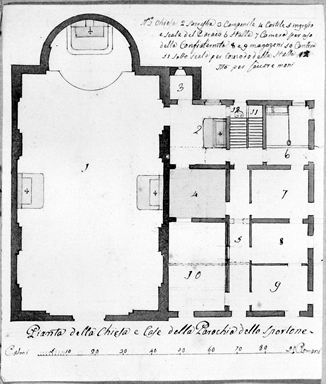 N.º 1 Chiesa 2 Sacrestia 3 Campanile 4 Cortile 5 ingresso
e scala del Paroco 6 Stalla 7 Camera per uso
della Confraternita 8 e 9 magazeni 10 Cantina
11 Sotto Scala per comodo della Stalla 12
per
3
12
11
2
6
1
4
4
4
4
7
5
8
10
9
Pianta della Chiesa e Case della Parochia dello Sportone
10 20 30 40 50 60 70 80 Romani